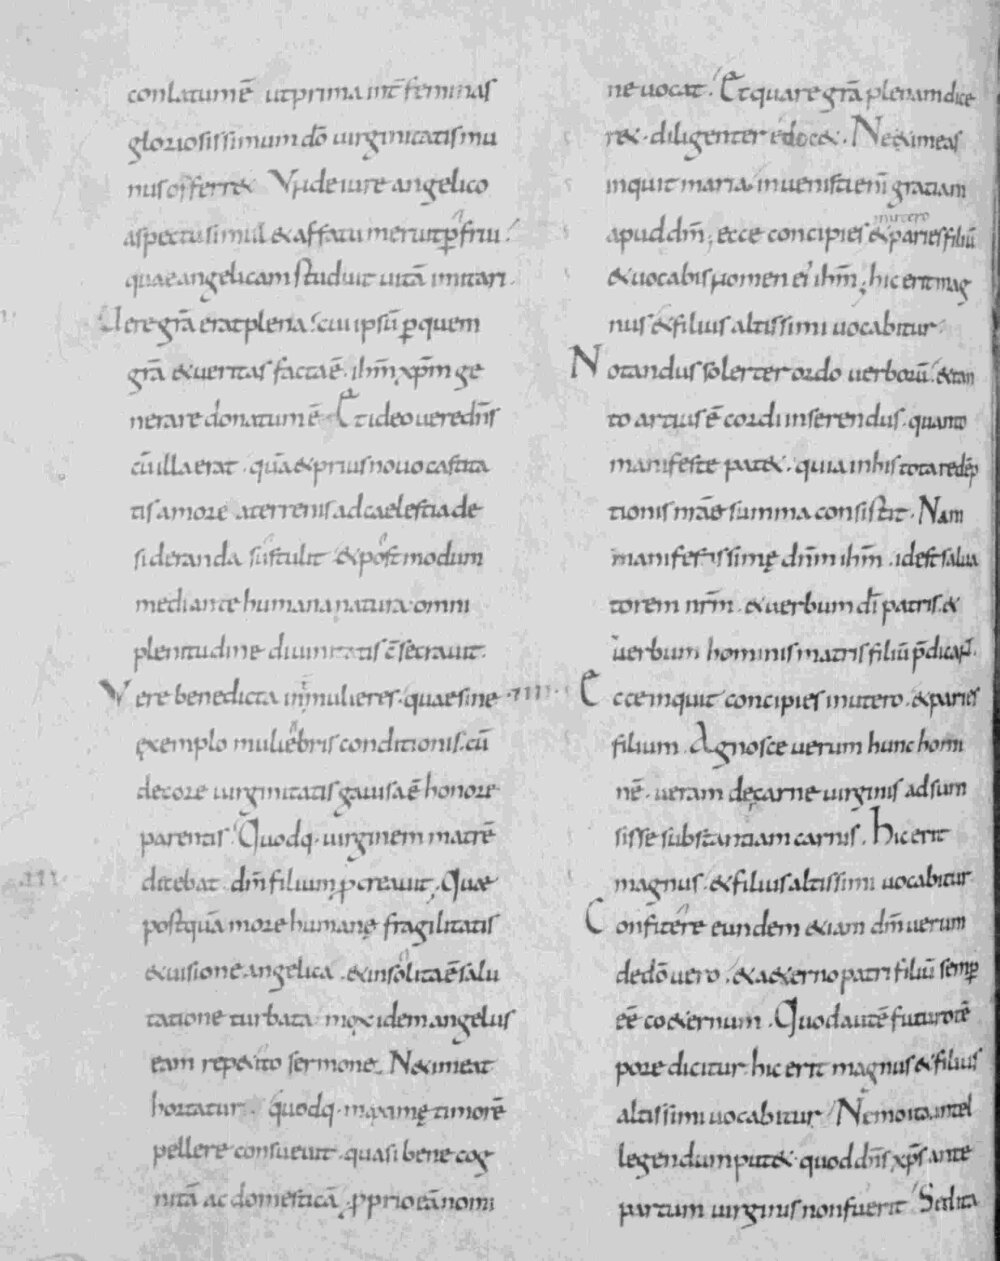 conlatum ē ut prima int̄ feminas
gloriosissimum dō uirginitatis mu
nus offerret Vnde iure angelico
aspectu simul & affatu meruit ꝑfrui
quae angelicam studuit uitā imitari.
Uere grā erat plena. cui ipsū ꝑ quem
grā & ueritas facta ē. ihm̄ xp̄m ge
nerare donatum ē Et ideo uere dn̄s
cū illa erat. quā & prius nouo castita
tis amore a terrenis ad caelestia de
sideranda sustulit & post modum
mediante humana natura omni
plenitudine diuinitatis c̄secrauit.
Vere benedicta in mulieribus. quae sine .IIII.
exemplo muliebris conditionis. cū
decore uirginitatis gauisa ē honore
parentis. Quodq. uirginem matrē
dicebat. dm̄ filium ꝓcreauit. Quae
postquā more humanę fragilitatis
& uisione angelica. & insolita ē salu
tatione turbata mox idem angelus
eam repetito sermone. Ne timeat
hortatur. quodq. maximę timorē
pellere consueuit. quasi bene cog
nitā ac domesticā. ꝓprio eā nomi
.III.
ne uocat. Et quare grā plenam dice
ret. diligenter edocet. Ne timeas
inquit maria. inuenisti eni gratiam
apud dm̄. ecce concipies in utero & paries filiū
& uocabis nomen ei ihm̄. hic erit mag
nus & filius altissimi uocabitur.
Notandus solerter ordo uerborū. & tan
to artius ē cordi inserendus. quanto
manifeste patet. quia in his tota redēp
tionis nrāe summa consistit. Nam
manifestissimę dn̄m ihm̄. id est salua
torem nr̄m. & uerbum dī patris. &
uerbum hominis matris filiū p̄dicat.
Ecce inquit concipies in utero. & paries
filium. Agnosce uerum hunc homi
nē. ueram de carne uirginis adsum
sisse substantiam carnis. Hic erit
magnus. & filius altissimi uocabitur
Confitere eundem etiam dm̄ uerum
de dō uero. & aeterno patri filiū semꝑ
eē coeternum. Quod autē futuro tē
pore dicitur hic erit magnus & filius
altissimi uocabitur Nemo ita intel
legendum putet. quod dn̄s xp̄s ante
partum uirginis non fuerit Sed ita